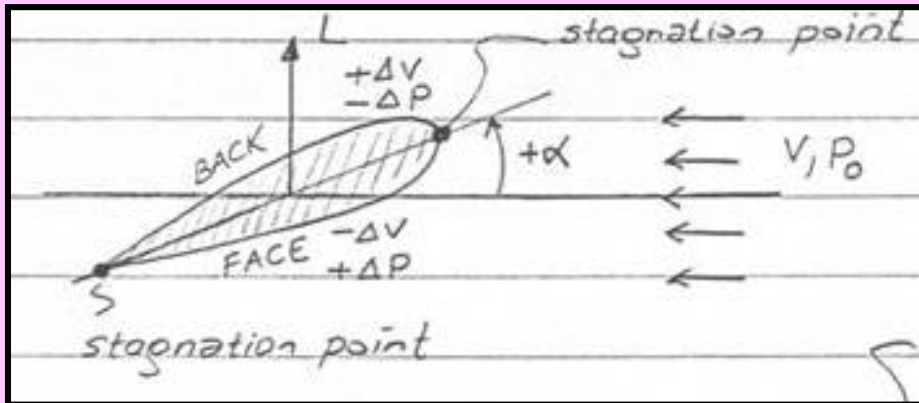 L
stagnation point
+ΔV
-ΔP
BACK
+α
V, P₀
FACE
-ΔV
+ΔP
S
stagnation point